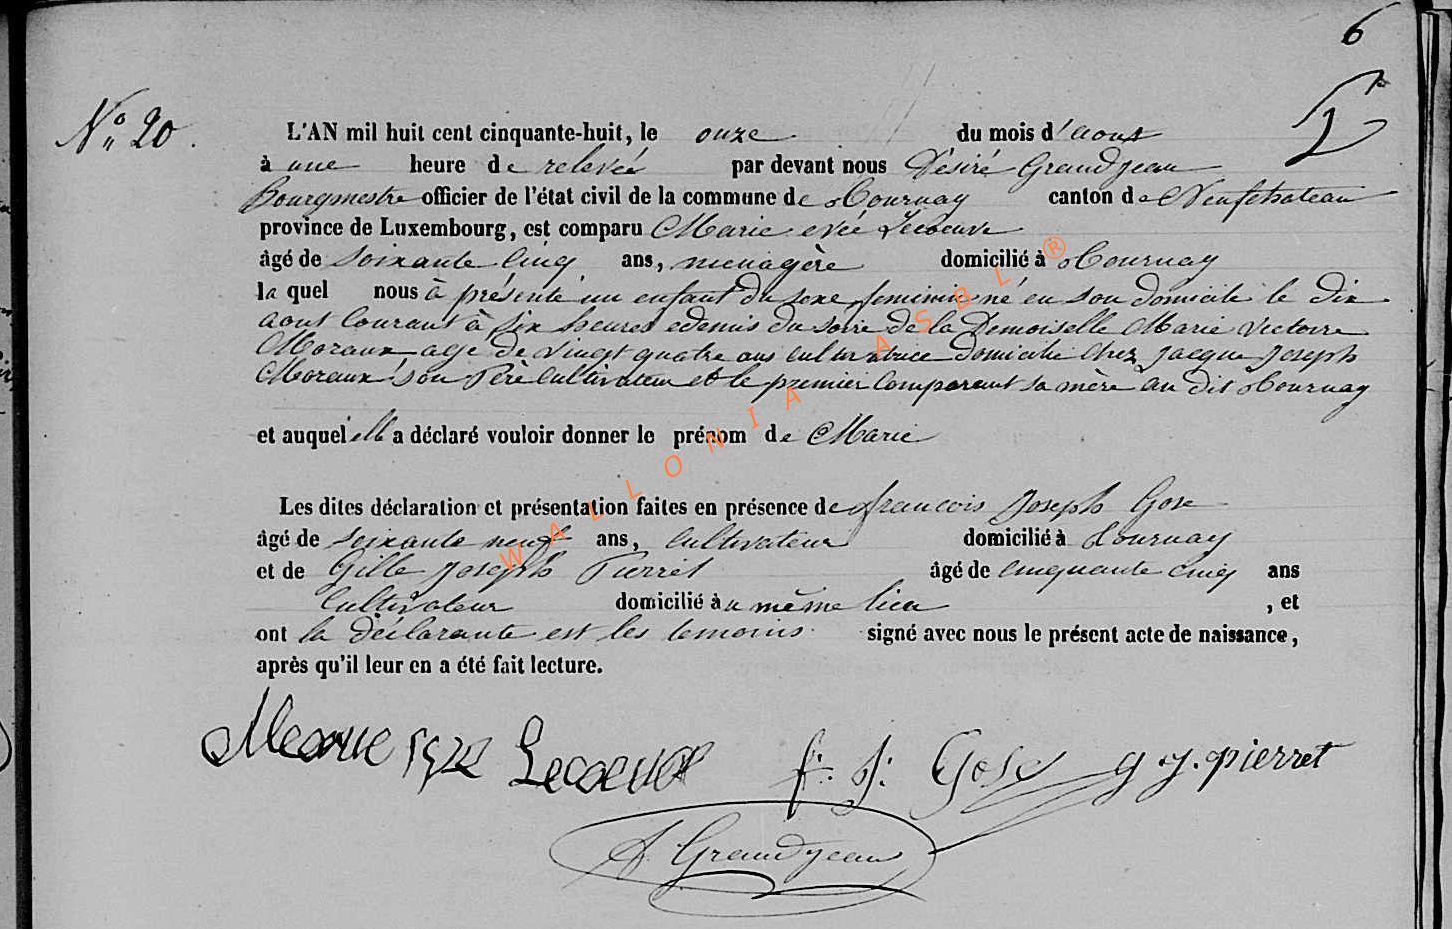 6
N° 20.
L'AN mil huit cent cinquante-huit, le onze du mois d'aout
à une heure de relevée par devant nous Désiré Grandjean
Bourgmestre officier de l'état civil de la commune de Tournay canton de Neufchateau
province de Luxembourg, est comparu Marie Lecoeuve
âgé de soixante cinq ans, menagère domicilié à Tournay
la quel nous à présenté un enfant du sexe feminin né en son domicile le dix
aout courant à six heures edemis du soire de la Demoiselle Marie Victoire
Moraux agé de vingt quatre ans cultivatrice domicilié chez Jacque Joseph
Moraux son Père Cultivateur et le premier Comparant sa mère au dit Tournay
et auquel elle a déclaré vouloir donner le prénom de Marie
Les dites déclaration et présentation faites en présence de francois Joseph Gose
âgé de soixante neuf ans, cultivateur domicilié à Tournay
et de Gille Joseph Pierret âgé de cinquante cinq ans
Cultivateur domicilié au même lieu , et
ont la déclarante est les temoins signé avec nous le présent acte de naissance,
après qu'il leur en a été fait lecture.
f. J. Gose g j. pierret
Grandjean
WALLONIA ASBL ®